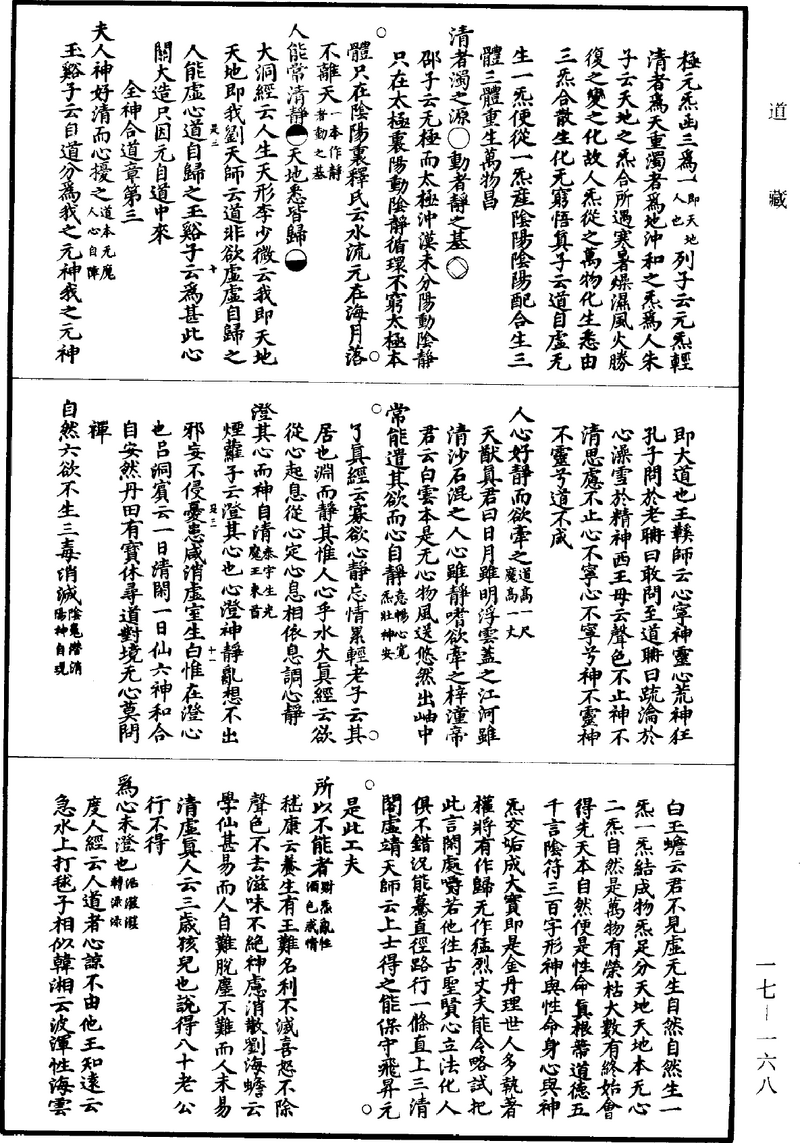 道藏
極元炁函三爲一即天地人也列子云元炁輕
清者爲天重濁者爲地沖和之炁爲人朱
子云天地之炁合所遇寒暑燥濕風火勝
復之變之化故人炁從之萬物化生悉由
三炁合散生化无窮悟真子云道自虛无
生一炁便從一炁産陰陽陰陽配合生三
體三體重生萬物昌
清者濁之源○動者靜之基
邵子云无極而太極沖漠未分陽動陰靜
只在太極裏陽動陰靜循環不窮太極本
體只在陰陽裏釋氏云水流元在海月落
不離天一本作靜者動之基
人能常清靜天地悉皆歸
大洞經云人生天形李少微云我即天地
天地即我劉天師云道非欲虛虛自歸之
人能虛心道自歸之王谿子云爲甚此心
關大造只因元自道中來
全神合道章第三
夫人神好清而心擾之道本元魔人心自障
玉谿子云自道分爲我之元神我之元神
即大道也王鞁師云心寧神靈心荒神狂
孔子問於老聃曰敢問至道聃曰疏瀹於
心澡雪於精神西王母云聲色不止神不
清思慮不止心不寧心不寧兮神不靈神
不靈兮道不成
人心好靜而欲牽之道高一尺魔高一丈
天猷真君曰日月雖明浮雲蓋之江河雖
清沙石混之人心雖靜嗜欲牽之梓潼帝
君云白雲本是无心物風送悠然出岫中
常能遣其欲而心自靜意暢心寬炁壯神安
了真經云寡欲心靜忘情累輕老子云其
居也淵而靜其惟人心乎水火真經云欲
從心起息從心定心息相依息調心靜
澄其心而神自清泰宇生光魔王束首
煙蘿子云澄其心也心澄神靜亂想不出
邪妄不侵憂患咸消虛室生白惟在澄心
也呂洞賓云一日清閑一日仙六神和合
自安然丹田有寶休尋道對境无心莫問
禪
自然六欲不生三毒消滅陰鬼潛消陽神自現
白玉蟾云君不見虛无生自然自然生一
炁一炁結成物炁足分天地天地本无心
二炁自然是萬物有榮枯大數有終始會
得先天本自然便是性命真根蔕道德五
千言陰符三百字形神與性命身心與神
炁交姤成大寶即是金丹理世人多執著
權將有作歸无作猛烈丈夫能令略試把
此言閑處嚼若他往古聖賢心立法化人
俱不錯況能驀直徑路行一條直上三清
閣虛靖天師云上士得之能保守飛昇元
是此工夫
所以不能者財炁亂性酒色惑情
嵇康云養生有五難名利不滅喜怒不除
聲色不去滋味不絕神慮消散劉海蟾云
學仙甚易而人自難脫塵不難而人未易
清虛真人云三歲孩兒也說得八十老公
行不得
爲心未澄也
度人經云人道者心諒不由他王知遠云
急水上打毬子相似韓湘云波渾性海雲
一七—一六八